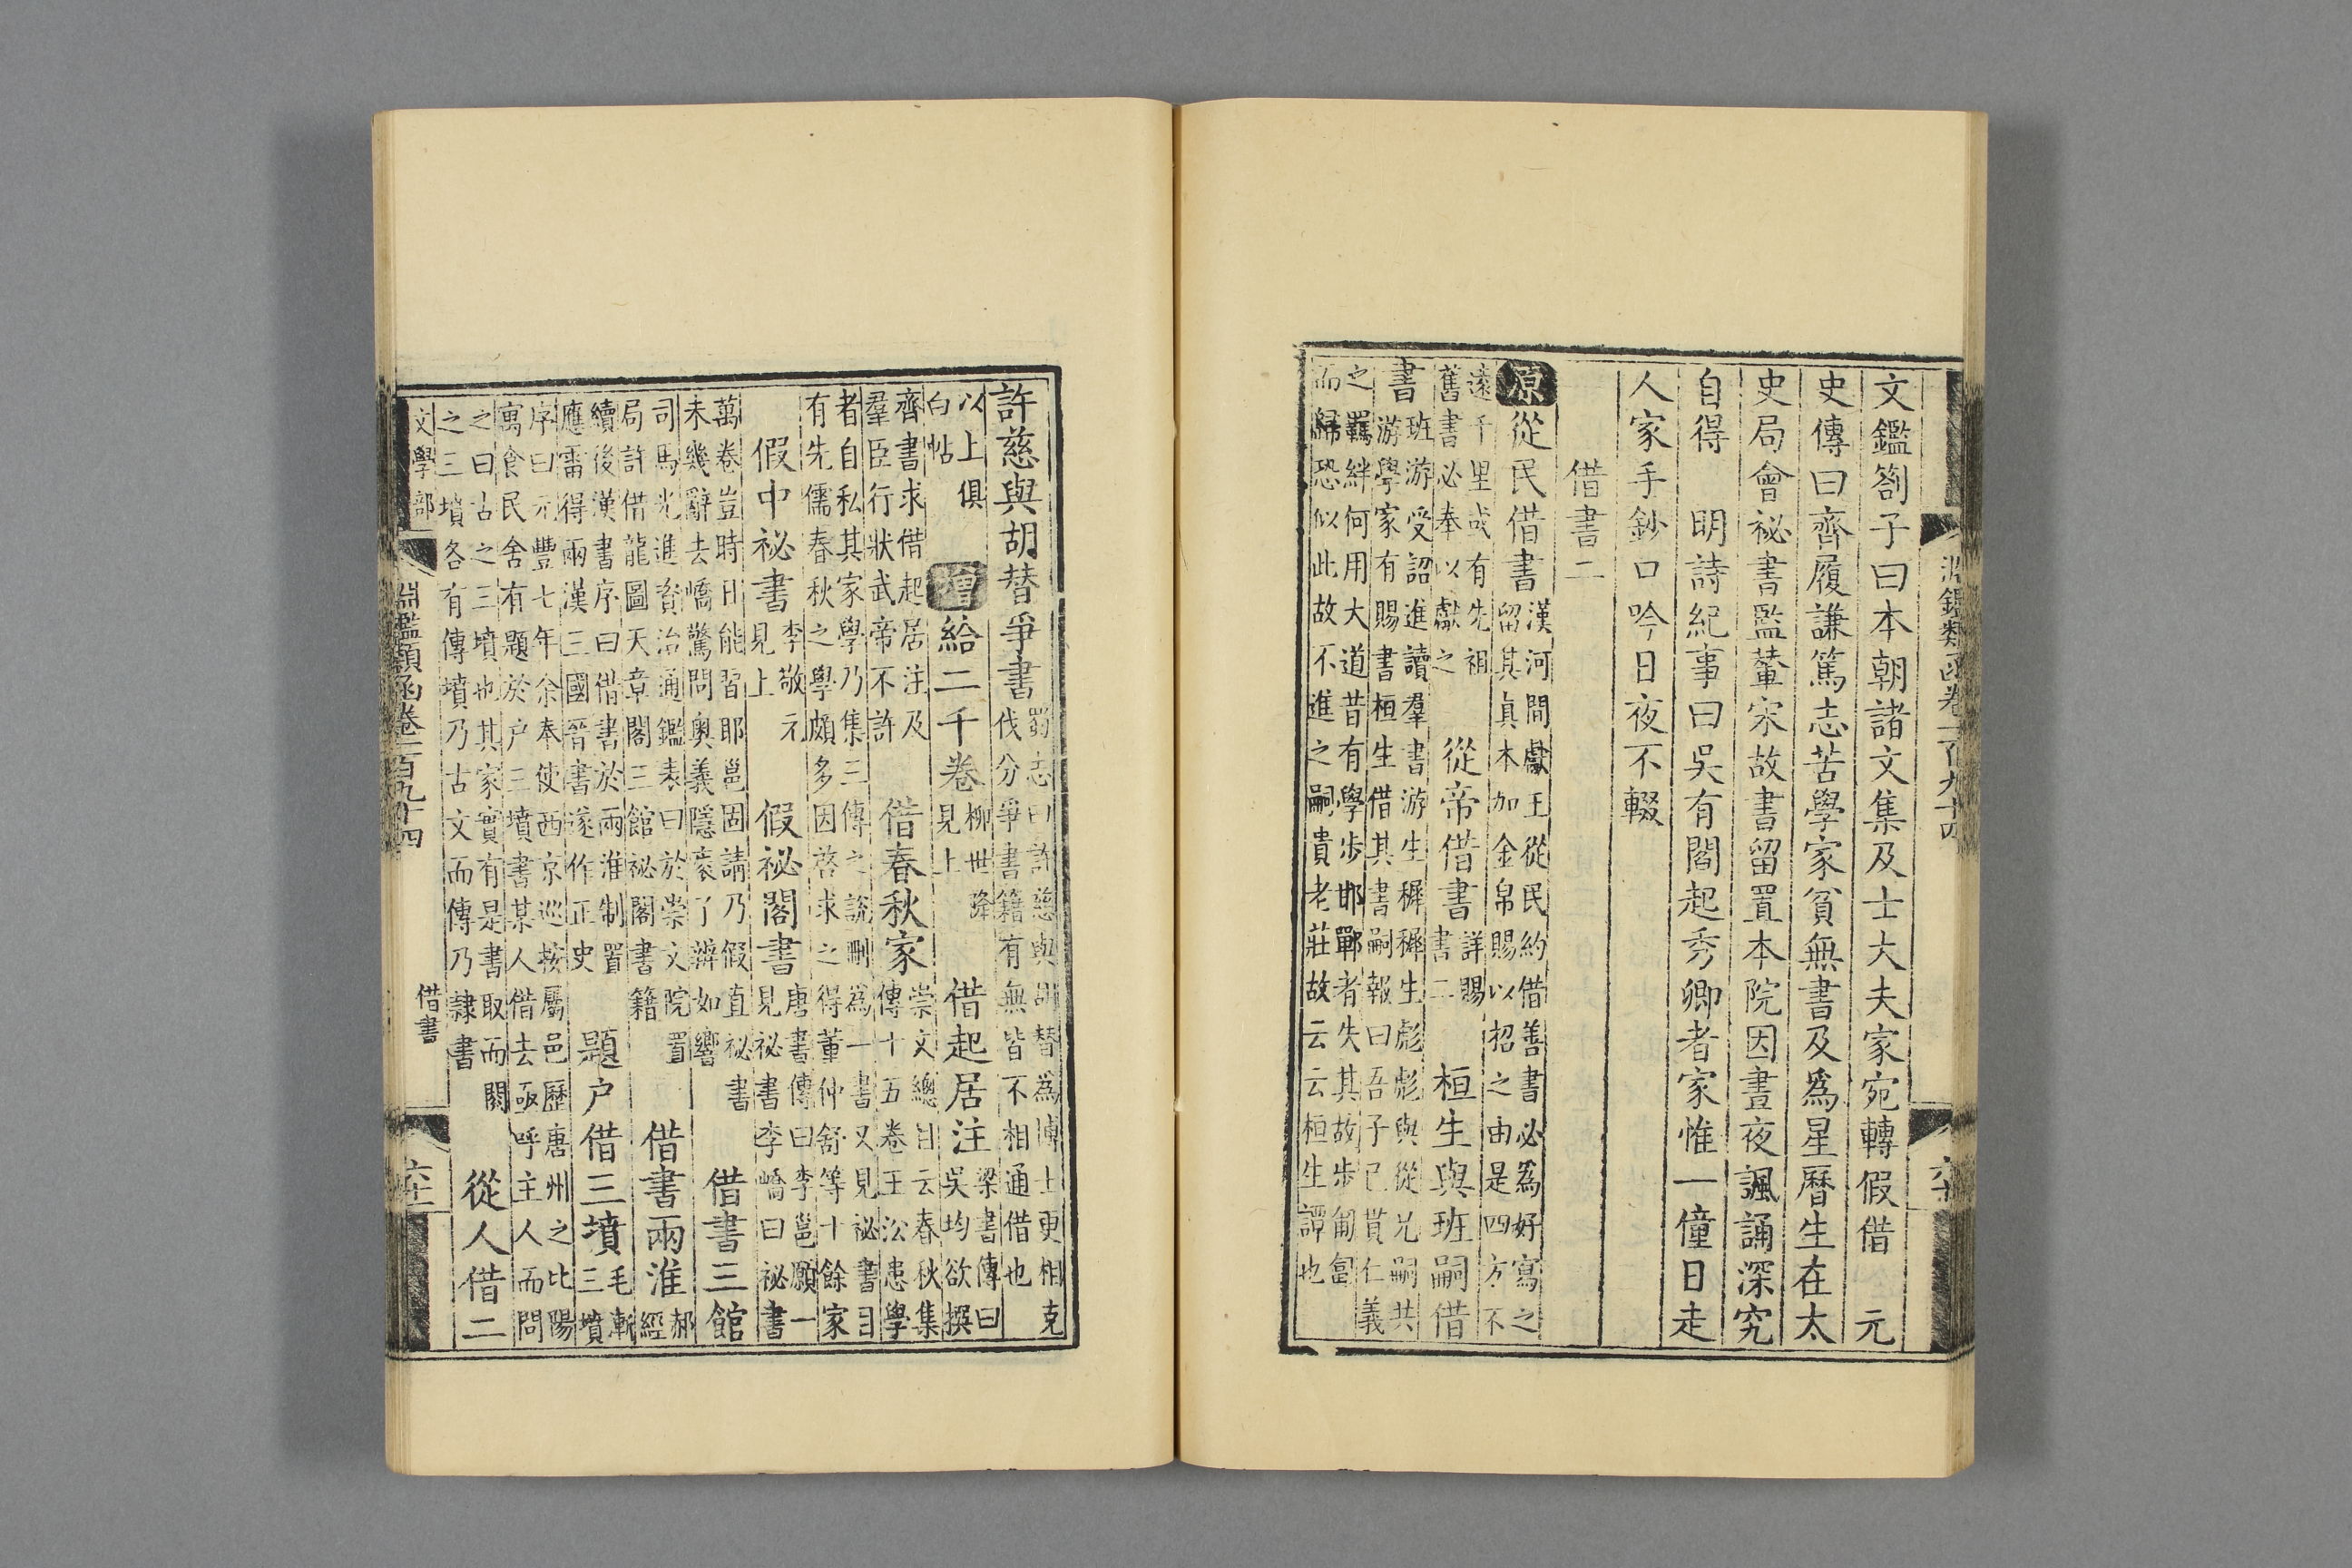 文鑑劄子曰本朝諸文集及士大夫家宛轉假借　元
史傳曰齊履謙篤志苦學家貧無書及爲星曆生在太
史局會祕書監輦宋故書留置本院因晝夜諷誦深究
自得　明詩紀事曰吳有閻起秀卿者家惟一僮日走
人家手鈔口吟日夜不輟
借書二
原從民借書漢河間獻王從民約借善書必爲好寫之
留其眞本加金帛賜以招之由是四方不
遠千里或有先祖
舊書必奉以獻之
從帝借書詳賜
書二
桓生與班嗣借
書班游受詔進讀羣書游生穉穉生彪彪與從兄嗣共
游學家有賜書桓生借其書嗣報曰吾子已貫仁義
之羈絆何用大道昔有學步邯鄲者失其故步匍匐
而歸恐似此故不進之嗣貴老莊故云云桓生譚也
淵鑑類函卷一百九十四
許慈與胡替爭書蜀志曰許慈與胡替爲博士更相克
伐分爭書籍有無皆不相通借也
以上俱
白帖
增給二千卷柳世隆
見上
借起居注梁書傳曰
吳均欲撰
齊書求借起居注及
羣臣行狀武帝不許
借春秋家崇文總目云春秋集
傳十五卷王沿患學
者自私其家學乃集三傳之說刪爲一書又見祕書目
有先儒春秋之學頗多因啓求之得董仲舒等十餘家
假中祕書李敬元
見上
假祕閣書唐書傳曰李邕願一
見祕書李嶠曰祕書
萬卷豈時日能習耶邕固請乃假直祕書
未幾辭去嶠驚問奧義隱袠了辨如響
借書三館
司馬光進資治通鑑表曰於崇文院置
局許借龍圖天章閣三館祕閣書籍
借書兩淮郝
經
續後漢書序曰借書於兩淮制置
應雷得兩漢三國晉書遂作正史
題户借三墳毛漸
三墳
序曰元豐七年余奉使西京巡按屬邑歷唐州之比陽
寓食民舍有題於户三墳書某人借去亟呼主人而問
之曰古之三墳也其家實有是書取而閱
之三墳各有傳墳乃古文而傳乃隸書
從人借二
文學部
淵鑑類函卷一百九十四
借書